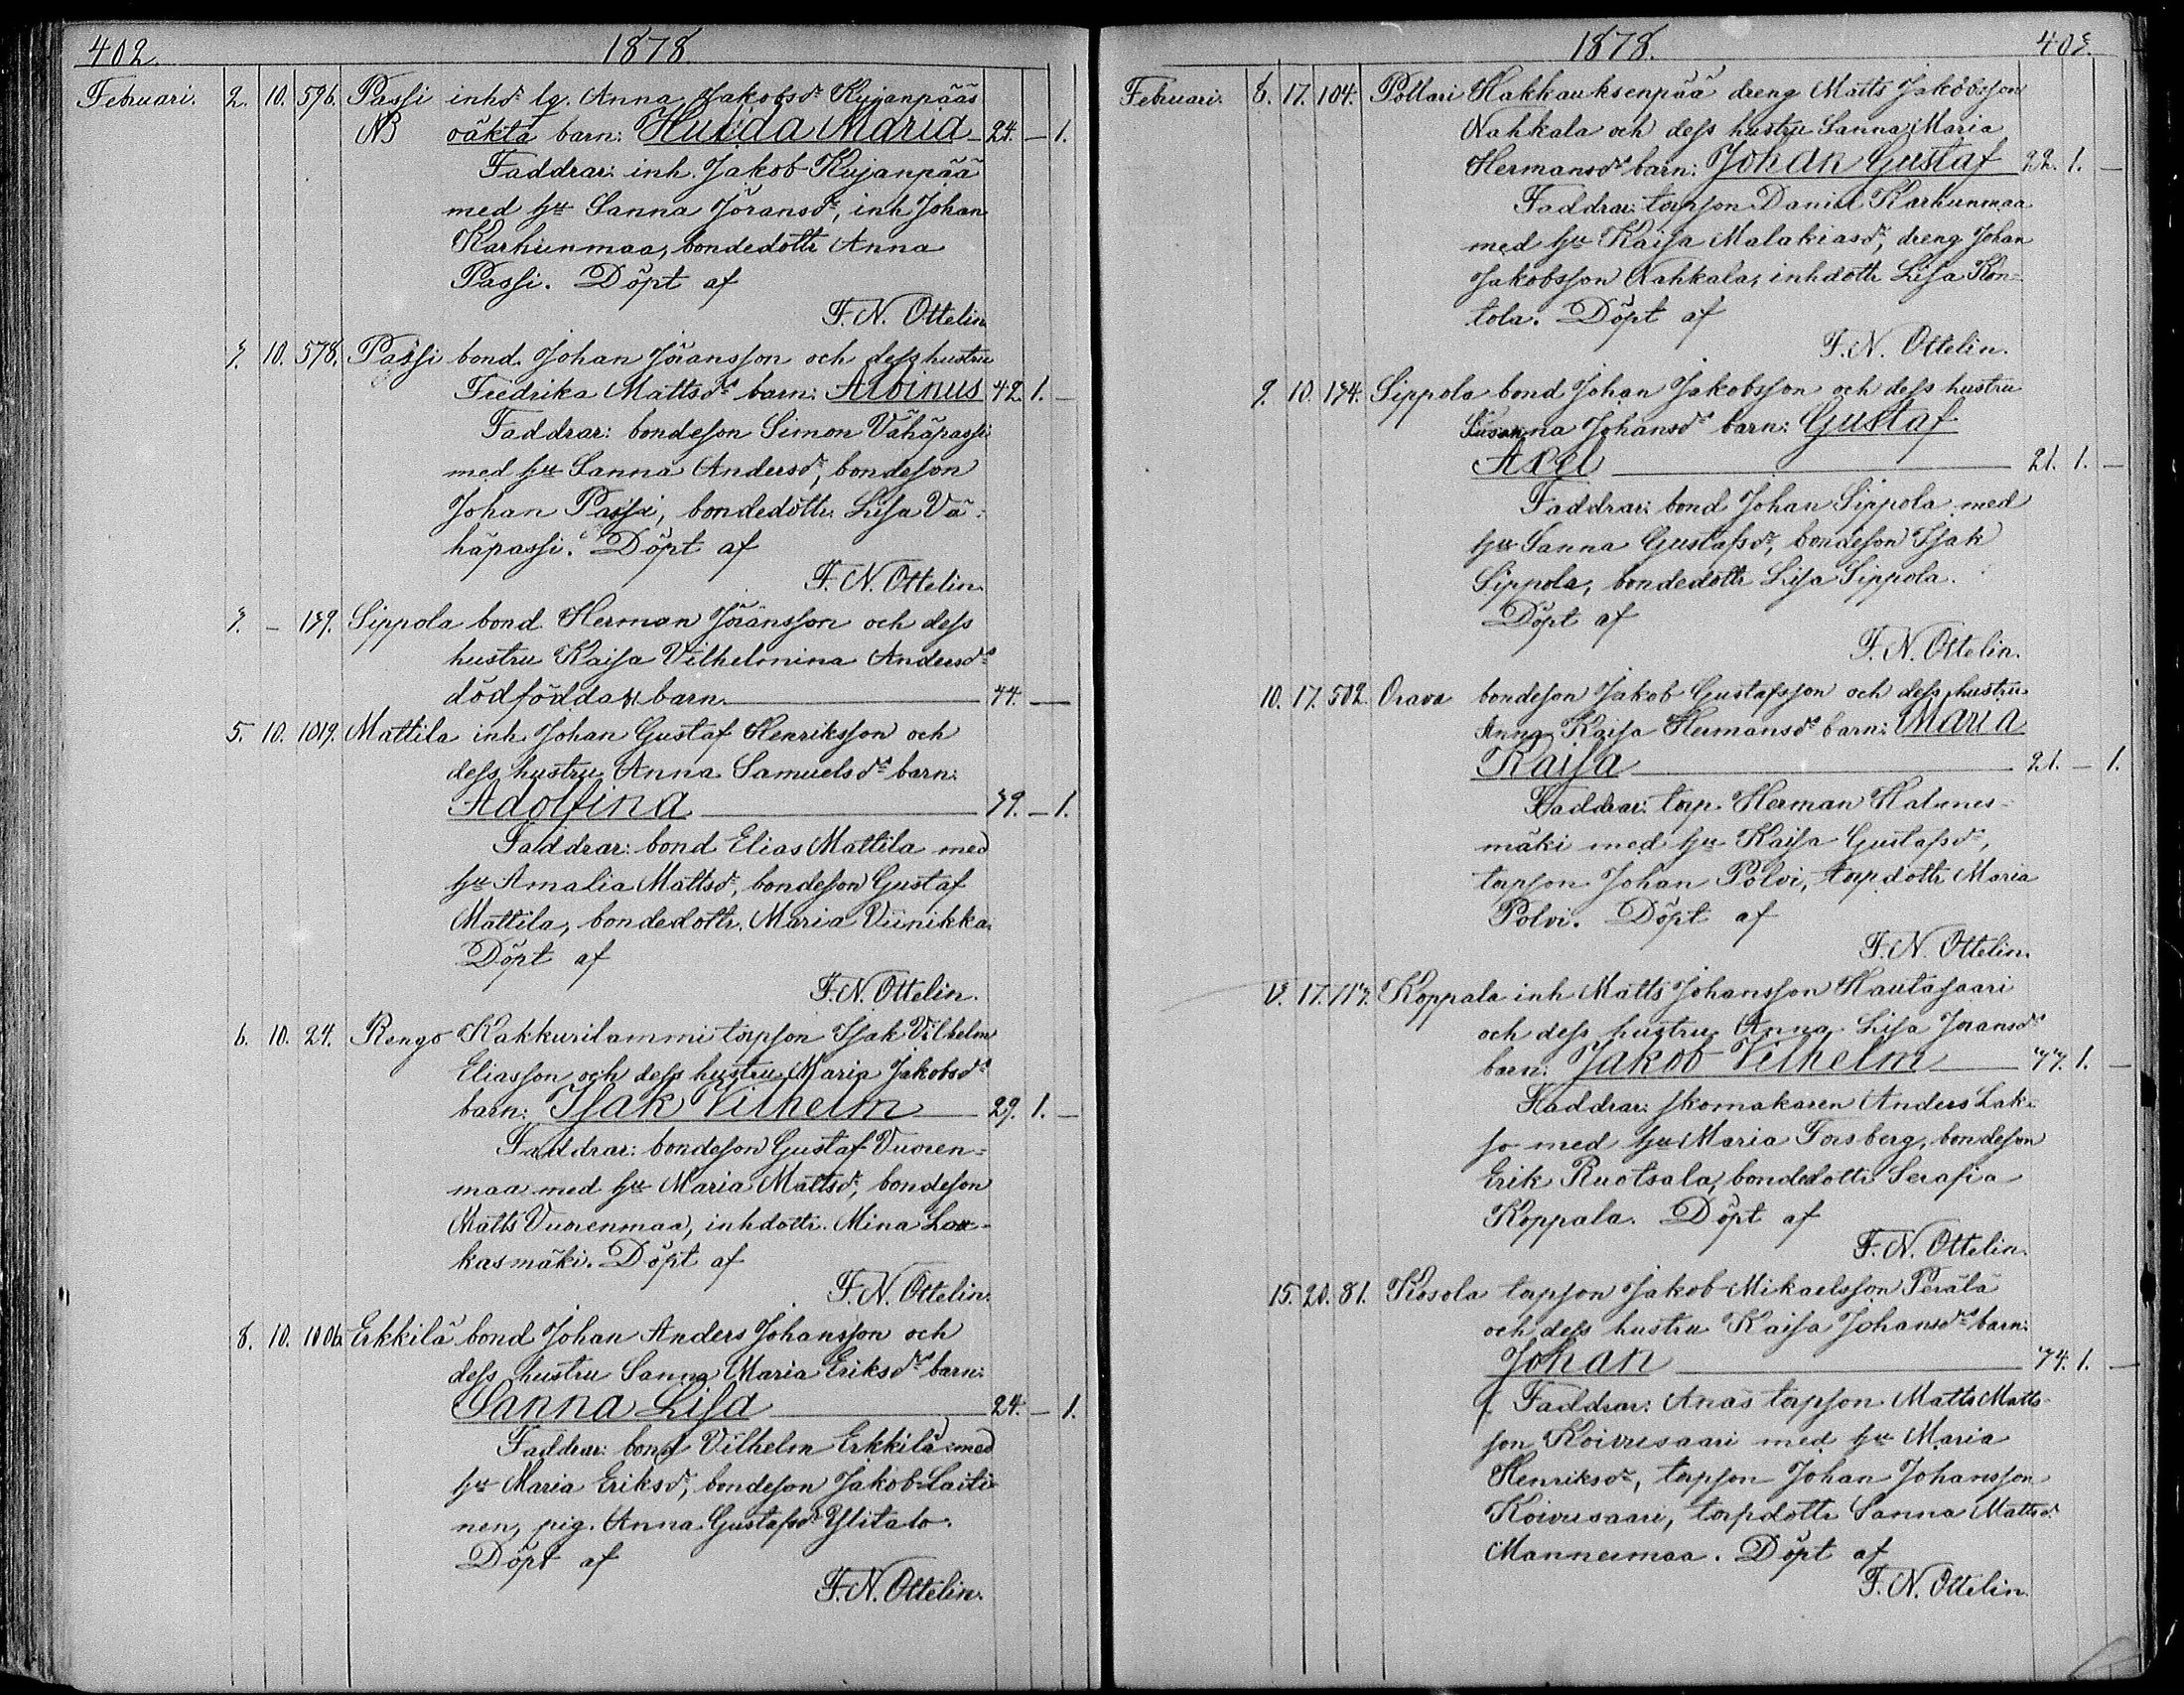 402.
1878.
Februari. 2. 10. 596. Passi inhdr lg. Anna Jakobsdr Kujanpääs
NB oäkta barn: Hulda Maria 24. — 1.
Faddrar: inh. Jakob Kujanpää
med hu Sanna Jöransdr, inh Johan
Karhunmaa, bondedottr Anna
Passi. Döpt af
F. N. Ottelin
3. 10. 578. Passi bond. Johan Jöransson och dess hustru
Fredrika Mattsdrs barn: Albinus 42. 1. —
Faddrar: bondeson Simon Vähäpassi
med hu Sanna Andersdr, bondeson
Johan Passi, bondedottr. Lisa Vä-
häpassi. Döpt af
F. N. Ottelin.
3. — 139. Sippola bond Herman Jöransson och dess
hustru Kaisa Vilhelmina Andersdrs
dödfödda barn. — 44. —
5. 10. 1019. Mattila inh Johan Gustaf Henriksson och
dess hustru Anna Samuelsdrs barn:
Adolfina — 39. — 1.
Faddrar: bond Elias Mattila med
hu Amalia Mattsdr, bondeson Gustaf
Mattila, bondedottr. Maria Viinikka.
Döpt af
F. N. Ottelin.
6. 10. 24. Rengo Kakkurilammi torpson Isak Vilhelm
Eliasson och dess hustru Maria Jakobsdrs
barn: Isak Vilhelm — 29. 1. —
Faddrar: bondeson Gustaf Vuoren-
maa med hu Maria Mattsdr, bondeson
Matts Vuorenmaa, inhdottr. Mina Lou-
kasmäki. Döpt af
F. N. Ottelin.
8. 10. 1006. Erkkilä bond Johan Anders Johansson och
dess hustru Sanna Maria Eriksdrs barn:
Sanna Lisa — 24. — 1.
Faddrar: bond Vilhelm Erkkilä med
hu Maria Eriksdr, bondeson Jakob Laiti-
nen, pig. Anna Gustafsdr Ylitalo.
Döpt af
F. N. Ottelin.
1878.
403.
Februari. 8. 17. 104. Pollari Hakkauksenpää dreng Matts Jakobsson
Nahkala och dess hustru Sanna Maria
Hermansdrs barn: Johan Gustaf 22. 1. —
Faddrar: torpson Daniel Karhunmaa
med hu Kaisa Malakiasdr, dreng Johan
Jakobsson Nahkala, inhdottr Lisa Kon-
tola. Döpt af
F. N. Ottelin.
9. 10. 134. Sippola bond Johan Jakobsson och dess hustru
Susanna Johansdrs barn: Gustaf
Axel — 21. 1. —
Faddrar: bond Johan Sippola med
hu Sanna Gustafsdr, bondeson Isak
Sippola, bondedottr Lisa Sippola.
Döpt af
F. N. Ottelin.
10. 17. 502. Orava bondeson Jakob Gustafsson och dess hustru
Anna Kaisa Hermansdrs barn: Maria
Kaisa — 21. — 1.
Faddrar: torp. Herman Halmes-
mäki med hu Kaisa Gustafsdr,
torpson Johan Polvi, torpdottr Maria
Polvi. Döpt af
F. N. Ottelin.
13. 17. 113. Koppala inh Matts Johansson Hautasaari
och dess hustru Anna Lisa Joransdrs
barn: Jakob Vilhelm — 37. 1. —
Faddrar: skomakaren Anders Lak-
so med hu Maria Forsberg, bondeson
Erik Ruotsala, bondedottr Serafia
Koppala. Döpt af
F. N. Ottelin.
15. 20. 81. Kosola torpson Jakob Mikaelsson Perälä
och dess hustru Kaisa Johansdrs barn:
Johan — 34. 1. —
Faddrar: Anäs torpson Matts Matts-
son Koivusaari med hu Maria
Henriksdr, torpson Johan Johansson
Koivusaari, torpdottr Sanna Mattsdr
Mannermaa. Döpt af
F. N. Ottelin.